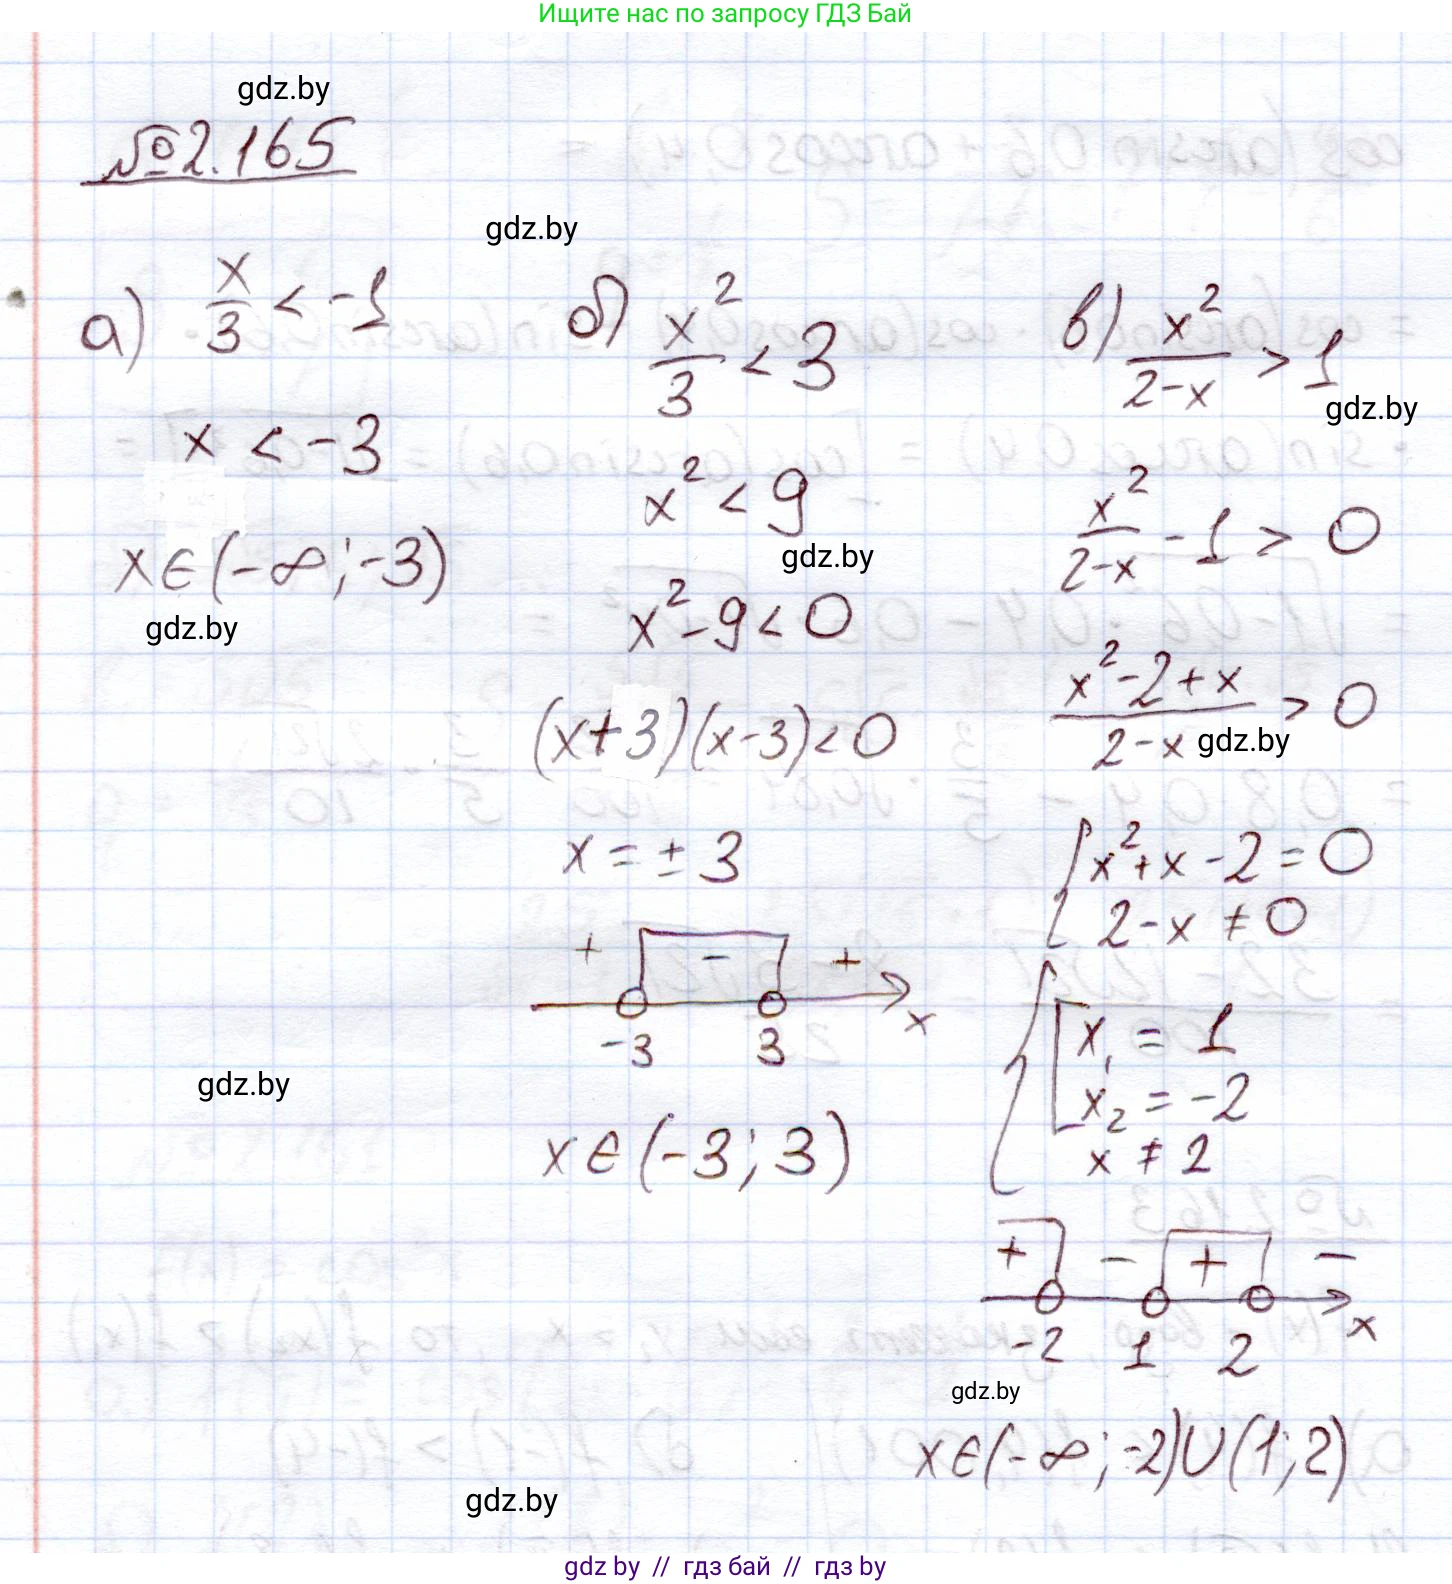 Ищите нас по запросу ГДЗ Бай
gdz.by
№2.165
gdz.by
а) x/3 < -1
x < -3
x ∈ (-∞; -3)
gdz.by
б) x²/3 < 3
x² < 9
gdz.by
x² - 9 < 0
(x+3)(x-3) < 0
x = ± 3
+ - +
-3 3 x
gdz.by
x ∈ (-3; 3)
в) x²/(2-x) > 1
gdz.by
x²/(2-x) - 1 > 0
(x²-2+x)/(2-x) > 0
gdz.by
{ x²+x-2 = 0
2-x ≠ 0
{ [ x₁ = 1
x₂ = -2
x ≠ 2
+ - + -
-2 1 2 x
gdz.by
x ∈ (-∞; -2) ∪ (1; 2)
gdz.by
gdz by // гдз бай // гдз by